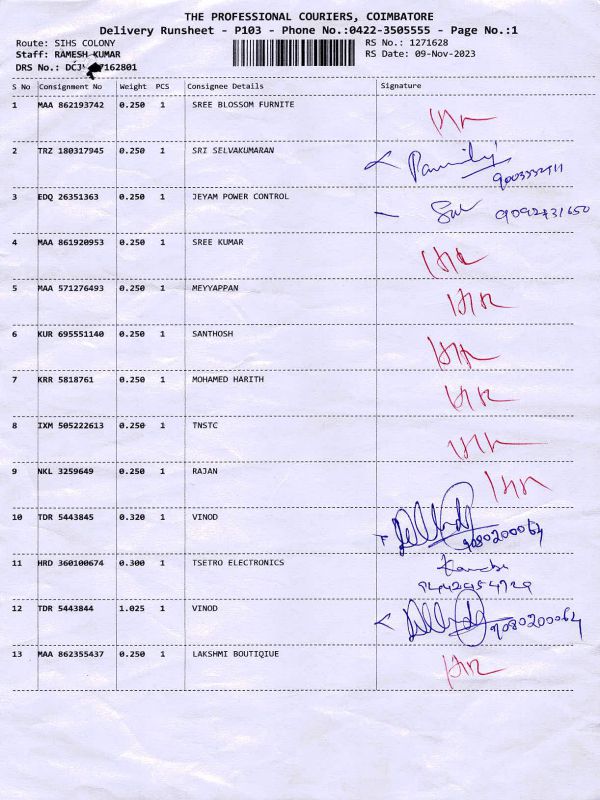 THE PROFESSIONAL COURIERS, COIMBATORE
Delivery Runsheet - P103 - Phone No.:0422-3505555 - Page No.:1
Route: SIHS COLONY RS No.: 1271628
Staff: RAMESH KUMAR RS Date: 09-Nov-2023
DRS No.: 7162801
S No Consignment No Weight PCS Consignee Details Signature
1 MAA 862193742 0.250 1 SREE BLOSSOM FURNITE
2 TRZ 180317945 0.250 1 SRI SELVAKUMARAN
3 EDQ 26351363 0.250 1 JEYAM POWER CONTROL 9092731650
4 MAA 861920953 0.250 1 SREE KUMAR
5 MAA 571276493 0.250 1 MEYYAPPAN
6 KUR 695551140 0.250 1 SANTHOSH
7 KRR 5818761 0.250 1 MOHAMED HARITH
8 IXM 505222613 0.250 1 TNSTC
9 NKL 3259649 0.250 1 RAJAN
10 TDR 5443845 0.320 1 VINOD 9080200064
11 HRD 360100674 0.300 1 TSETRO ELECTRONICS
12 TDR 5443844 1.025 1 VINOD 9080200064
13 MAA 862355437 0.250 1 LAKSHMI BOUTIQIUE